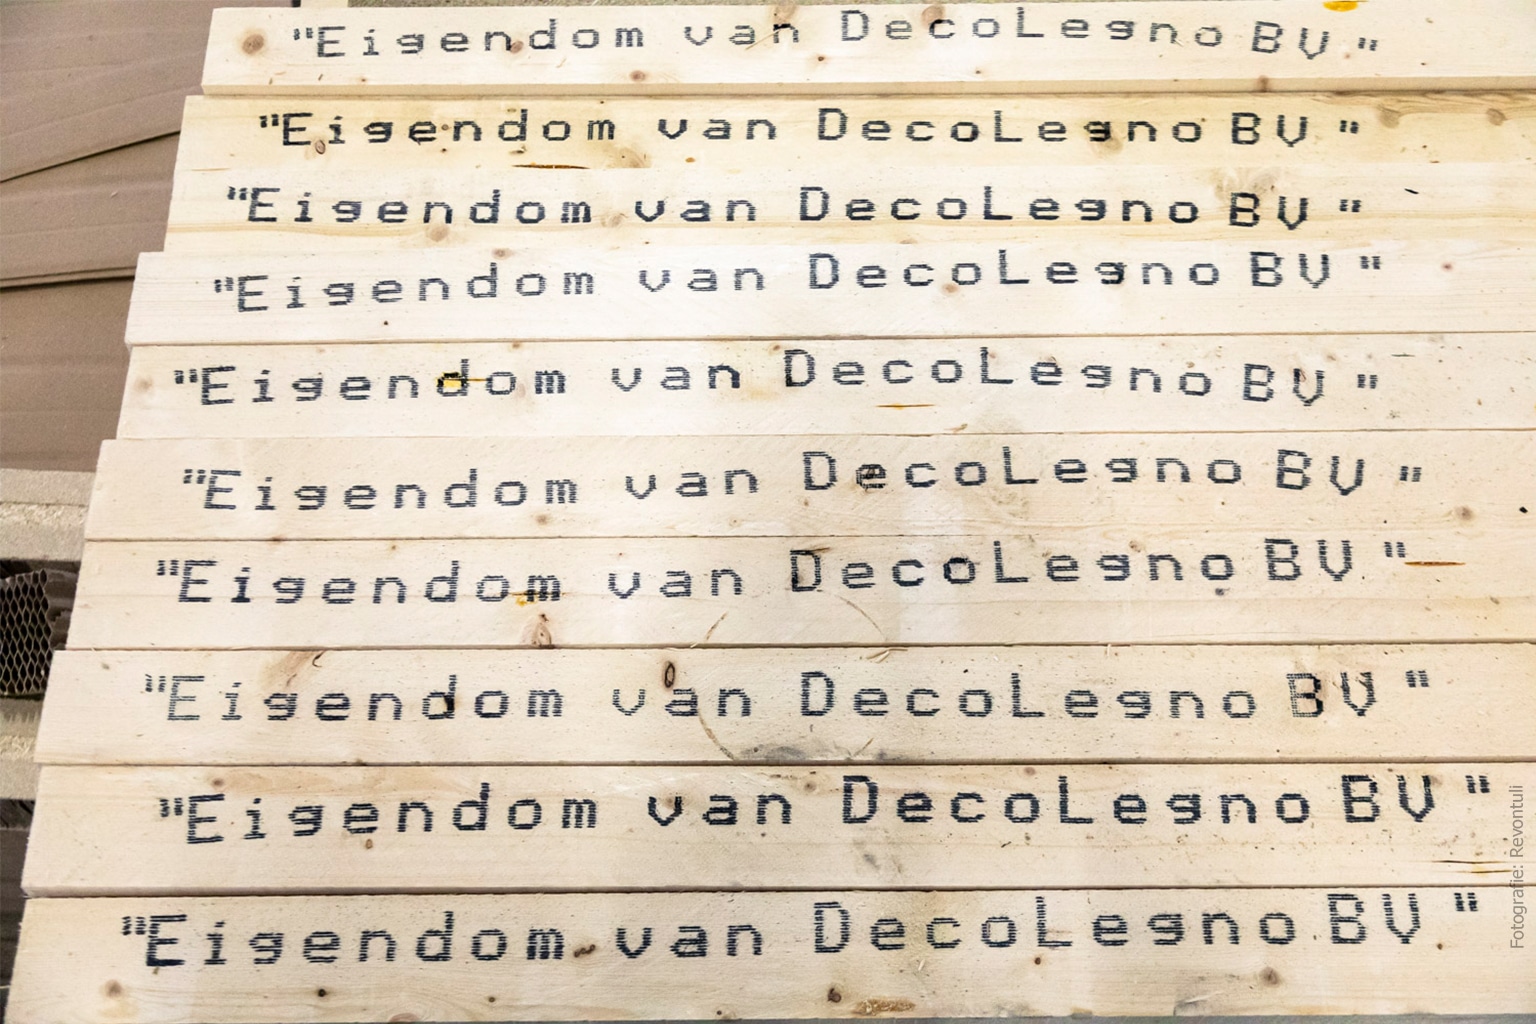 "Eigendom van DecoLegno BV"
"Eigendom van DecoLegno BV"
"Eigendom van DecoLegno BV"
"Eigendom van DecoLegno BV"
"Eigendom van DecoLegno BV"
"Eigendom van DecoLegno BV"
"Eigendom van DecoLegno BV"
"Eigendom van DecoLegno BV"
"Eigendom van DecoLegno BV"
"Eigendom van DecoLegno BV"
Fotografie: Revontuli